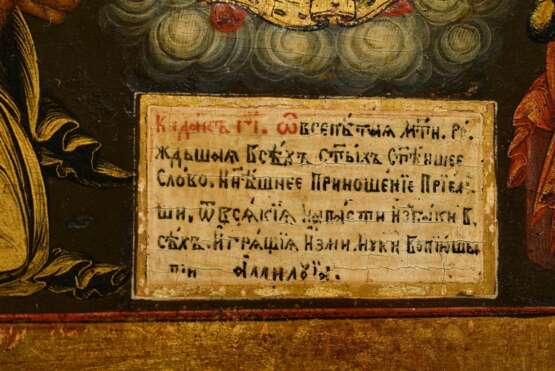 Кѡндакъ гі҃. Ѽ всепѣтая мт҃и. Ро
ждьшая всѣхъ ст҃ыхъ ст҃ѣишее
слово. Нн҃ѣшнее приношенїе прїем
ши, ѿ всякїя напасти избави в
сѣхъ. и грящїя изми. муки вопиющы
пїи аллилуїа.